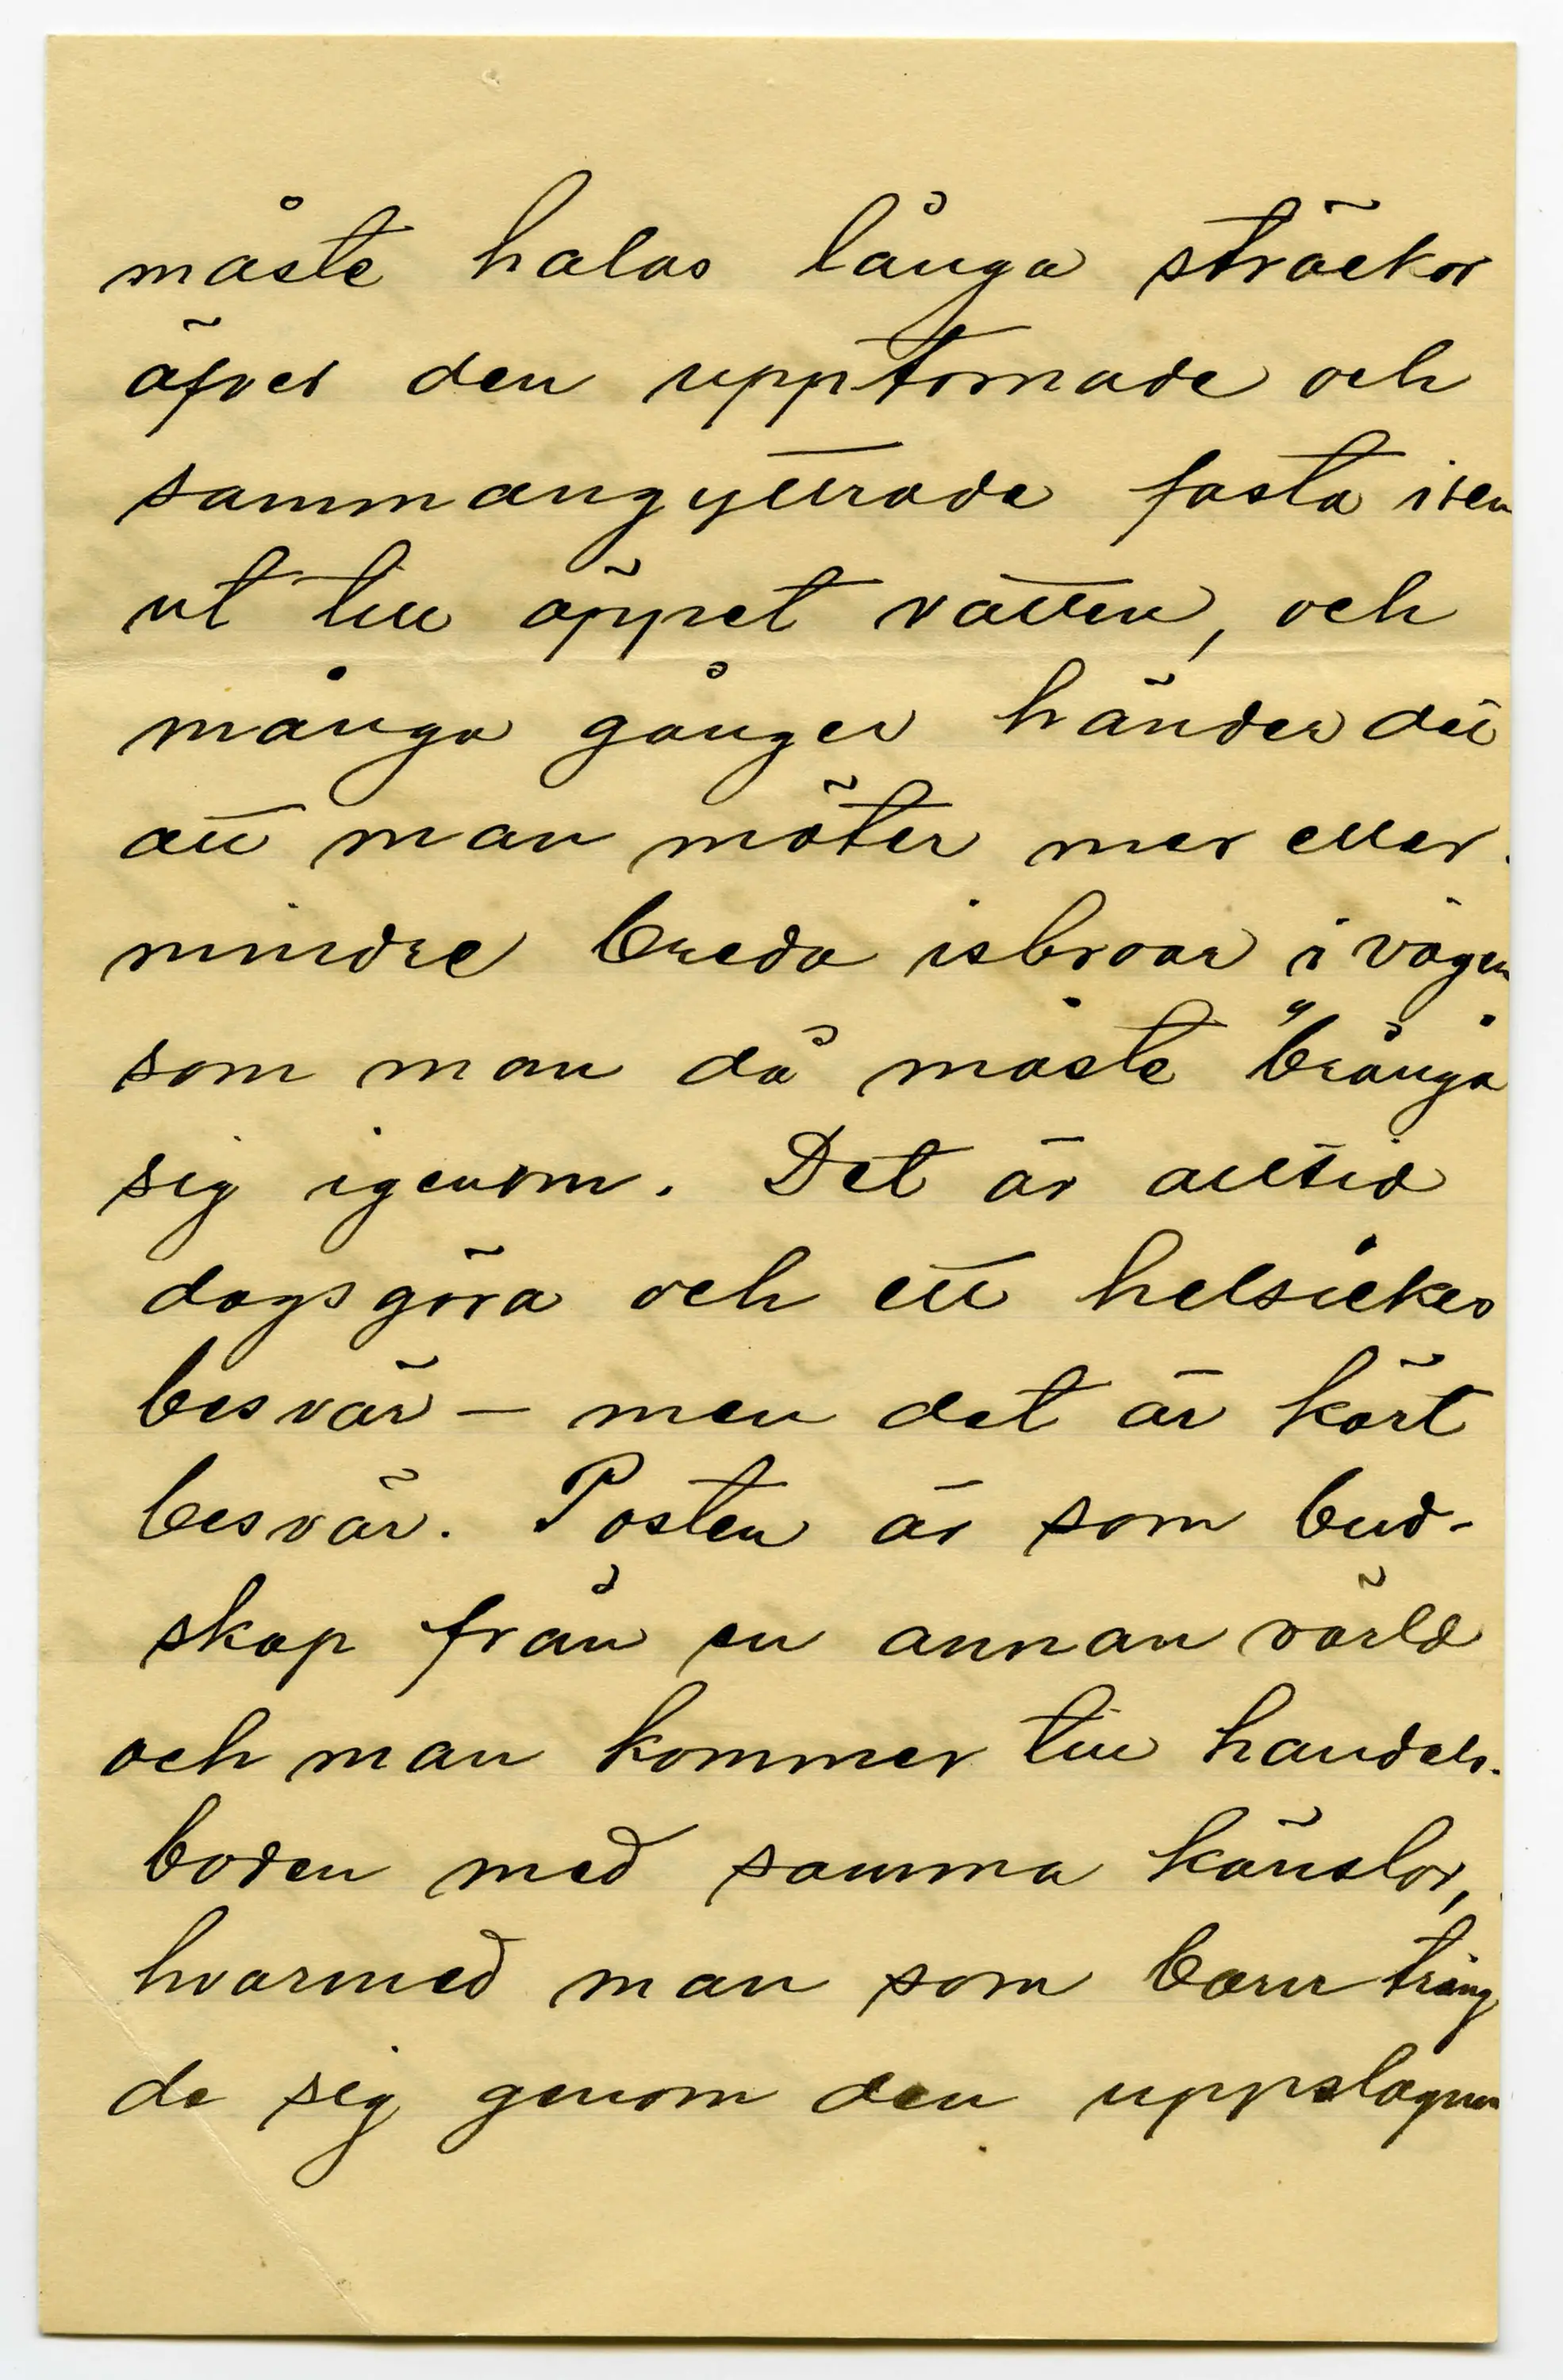 måste halas långa sträckor
öfver den upptornade och
sammangyttrade fasta isen
ut till öppet vatten, och
många gånger händer det
att man möter mer eller
mindre breda isbroar i vägen
som man då måste "brånga
sig igenom. Det är alltid
dagsgöra och ett helsickes
besvär — men det är kärt
besvär. Posten är som bud-
skap från en annan värld
och man kommer till handels-
boden med samma känslor,
hvarmed man som barn träng
de sig genom den uppslagna